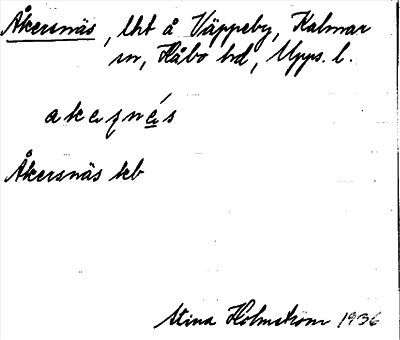 Åkersnäs, lht å Väppeby, Kalmar
sn, Håbo hd, Upps. l.
Åkersnäs kb
Stina Holmström 1936